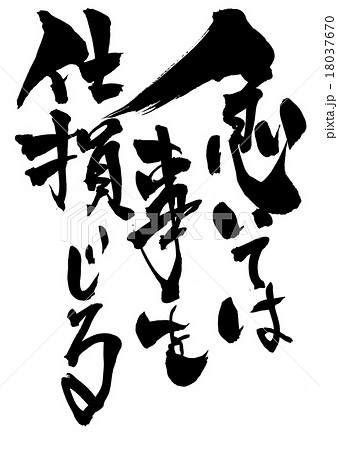 急いては
事を
仕損じる
PIXTA
pixta.jp - 18037670